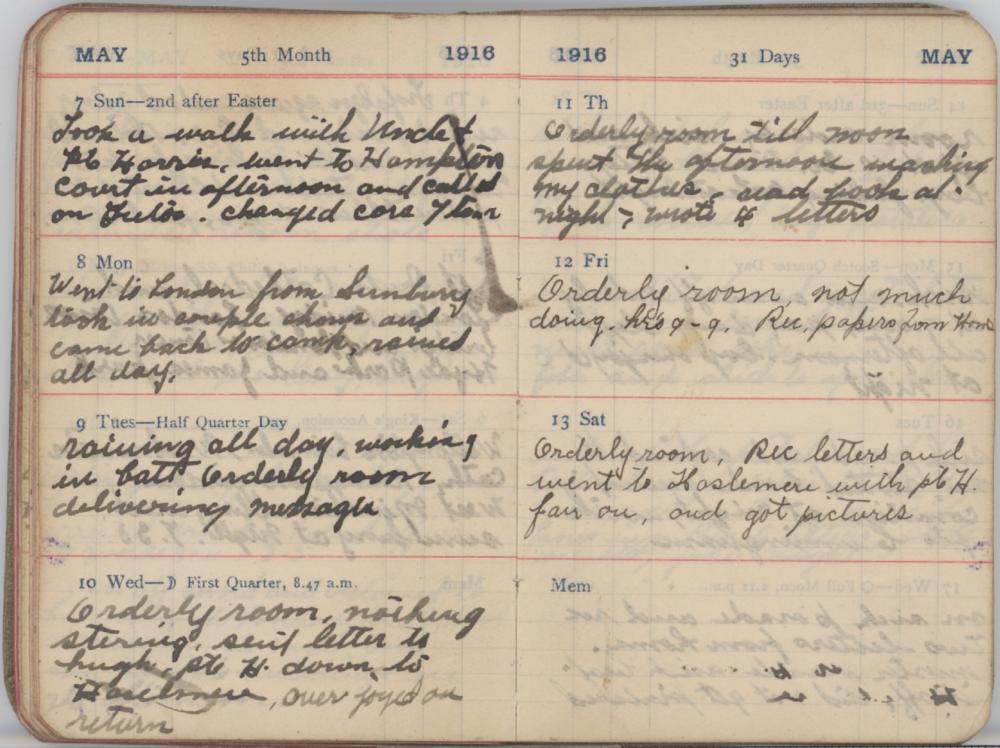 MAY 5th Month 1916
7 Sun—2nd after Easter
Took a walk with Uncle &
Pte Harris, went to Hampton
Court in afternoon and called
on Fields. changed
8 Mon
Went to London from Sunbury
took in couple shows and
came back to camp, rained
all day.
9 Tues—Half Quarter Day
raining all day, working
in batt. Orderly room
delivering messages
10 Wed—☽ First Quarter, 8.47 a.m.
Orderly room, nothing
stering, sent letter to
hugh, pte H. down to
Haselmere, over joyed on
return
1916 31 Days MAY
11 Th
Orderly room till noon
spent the afternoon washing
my clothes, read book at
night & wrote 4 letters
12 Fri
Orderly room, not much
doing. Rec, papers from Home
13 Sat
Orderly room, Rec letters and
went to Haslemere with pte H.
fair on, and got pictures
Mem